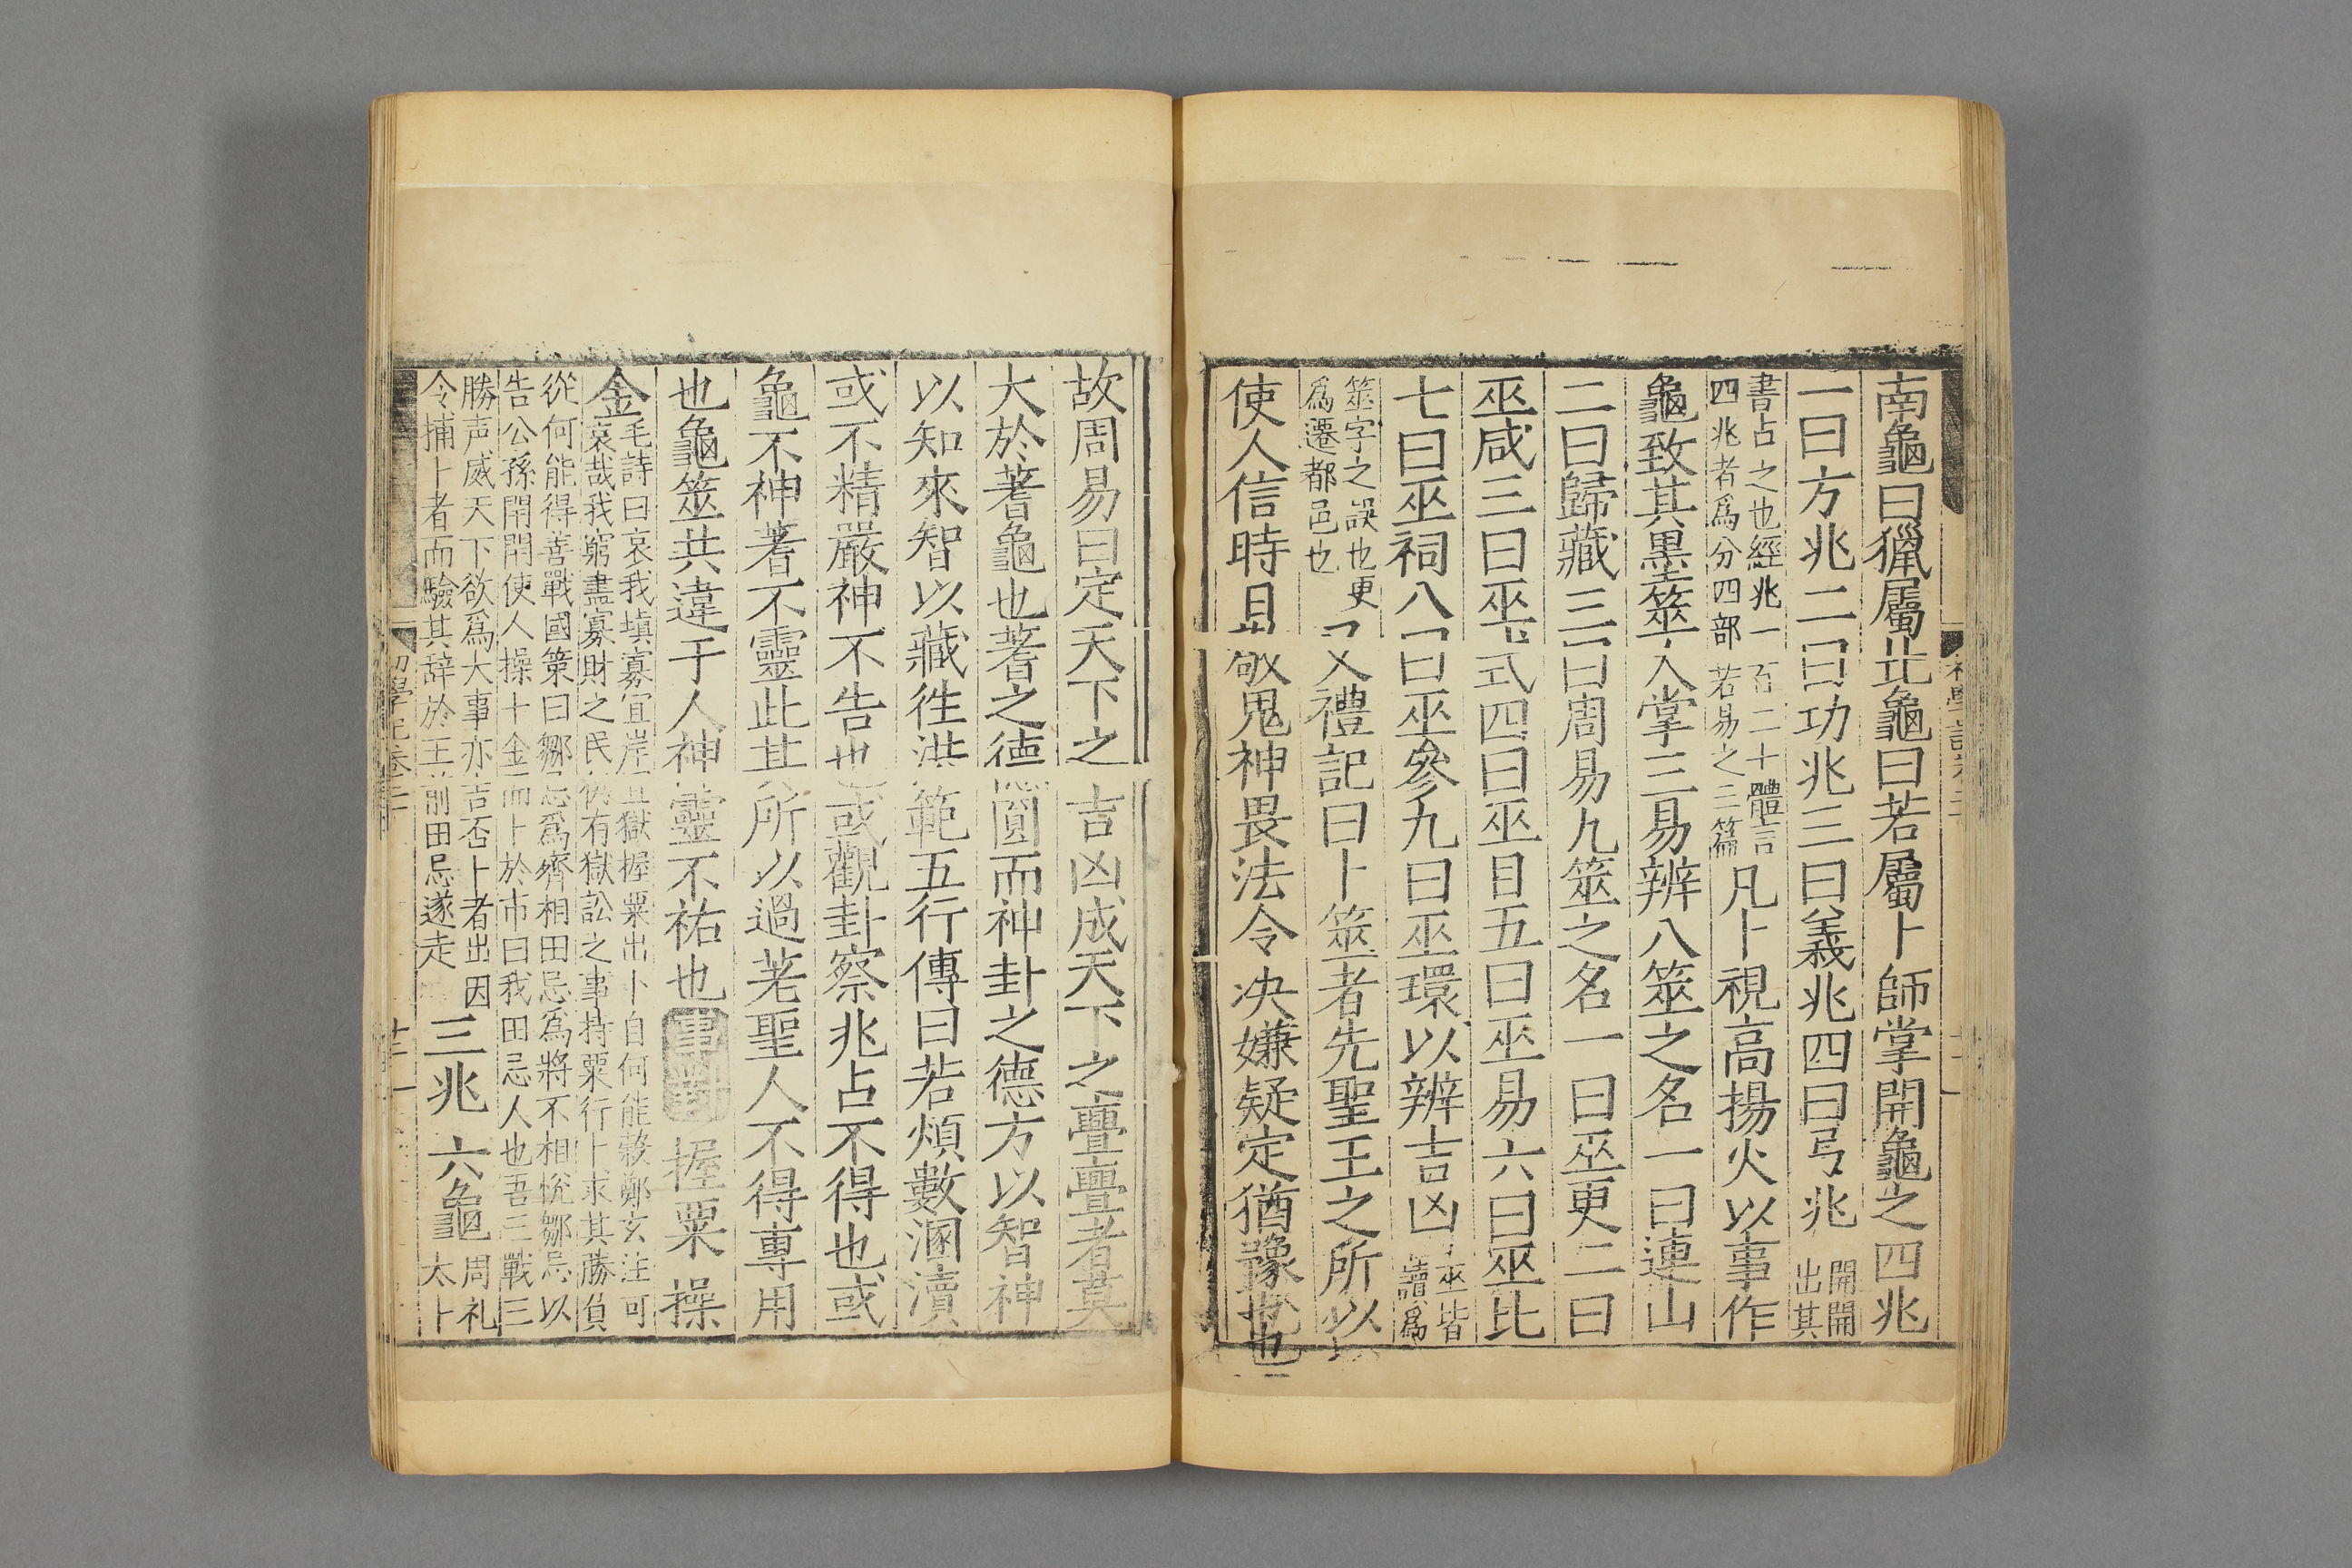 南龜曰獵屬北龜曰若屬卜師掌開龜之四兆
一曰方兆二曰功兆三曰義兆四曰弓兆開開出其
書占之也經兆一百二十體言四兆者爲分四部若易之二篇凡卜視高揚火以事作
龜致其墨筮人掌三易辨八筮之名一曰連山
二曰歸藏三曰周易九筮之名一曰巫更二曰
巫咸三曰巫式四曰巫目五曰巫易六曰巫比
七曰巫祠八曰巫參九曰巫環以辨吉凶巫皆讀爲
筮字之誤也更爲遷都邑也又禮記曰卜筮者先聖王之所以
使人信時日敬鬼神畏法令決嫌疑定猶豫也
故周易曰定天下之吉凶成天下之亹亹者莫
大於蓍龜也蓍之德圓而神卦之德方以智神
以知來智以藏徃洪範五行傳曰若煩數溷瀆
或不精嚴神不告也或觀卦察兆占不得也或
龜不神蓍不靈此其所以過差聖人不得專用
也龜筮共違于人神靈不祐也事對握粟操
金毛詩曰哀我填寡宜岸宜獄握粟出卜自何能穀鄭玄注可哀哉我窮盡寡財之民仍有獄訟之事持粟行卜求其勝負
從何能得善戰國策曰鄒忌爲齊相田忌爲將不相悅鄒忌以告公孫閈閈使人操十金而卜於市曰我田忌人也吾三戰三
勝声威天下欲爲大事亦吉否卜者出因令捕卜者而驗其辞於王前田忌遂走三兆六龜周礼太卜
初學記卷二十